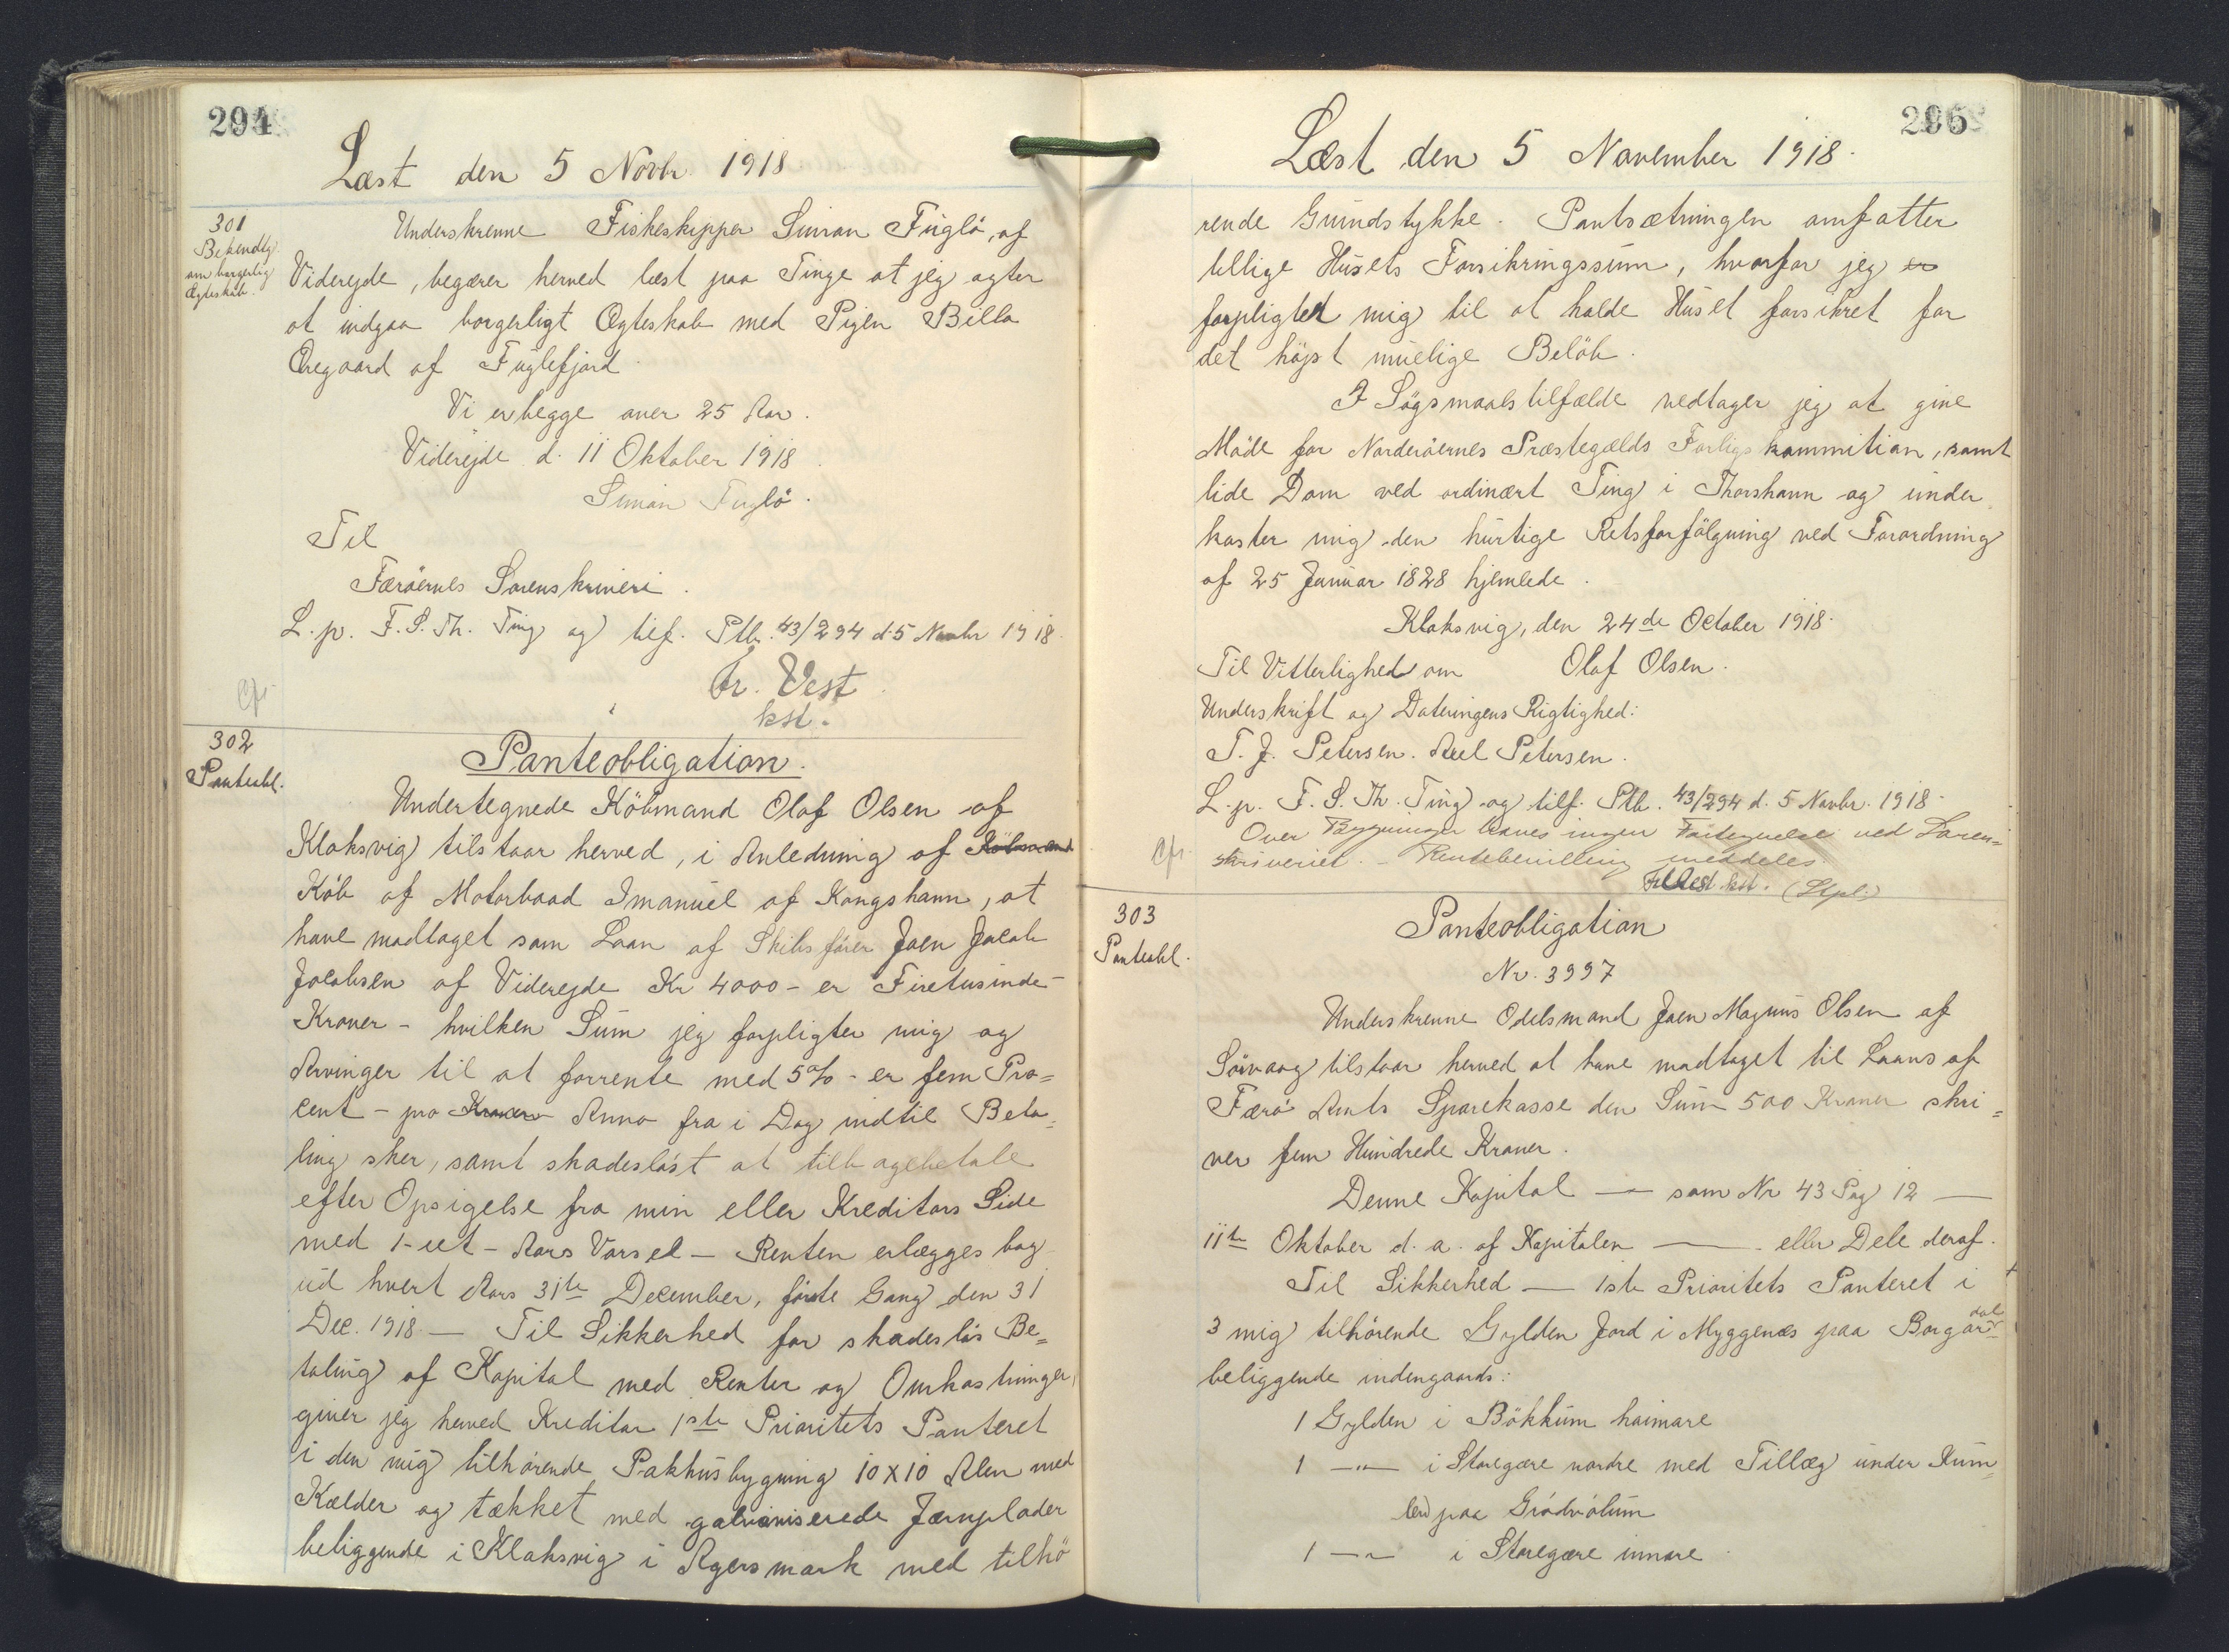 294
Læst den 5 Novbr 1918
301
Bekendtg
om borgerlig
Ægteskab.
Underskrevne Fiskeskipper Simon Fuglö, af
Viderejde, begærer herved læst paa Tinge at jeg agter
at indgaa borgerligt Ægteskab med Pigen Billa
Øregaard af Fuglefjord.
Vi er begge over 25 Aar.
Viderejde d. 11 Oktober 1918.
Simon Fuglö.
Til
Færöernes Sorenskriveri.
L. p. F. S. Th. Ting og tilf. Ptb. 43/294 d. 5 Novbr 1918.
Fr. Vest
kst.
Cfr.
302
Panteobl.
Panteobligation.
Undertegnede Köbmand Olaf Olsen af
Klaksvig tilstaar herved, i Anledning af Köbmand
Köb af Motorbaad Imanuel af Kongshavn, at
have modtaget som Laan af Skibsfører Joen Jacob
Jacobsen af Viderejde Kr 4000 - er Firetusinde -
Kroner - hvilken Sum jeg forpligter mig og
Arvinger til at forrente med 5% - er fem Pro=
cent - pro Kroner Anno fra i Dag indtil Beta=
ling sker, samt skadesløst at tilbagebetale
efter Opsigelse fra min eller Kreditors Side
med 1 - eet - Aars Varsel - Renten erlægges bag
ud hvert Aars 31te December, første Gang den 31
Dec. 1918. — Til Sikkerhed for skadesløs Be=
taling af Kapital med Renter og Omkostninger,
giver jeg herved Kreditor 1ste Prioritets Panteret
i den mig tilhørende Pakhusbygning 10 x 10 Alen med
Kælder og tækket med galvaniserede Jærnplader
beliggende i Klaksvig i Agersmark med tilhø
295
Læst den 5 November 1918.
rende Grundstykke. Pantsætningen omfatter
tillige Husets Forsikringssum, hvorfor jeg er
forpligter mig til at holde Huset forsikret for
det højst muelige Beløb.
I Søgsmaalstilfælde vedtager jeg at give
Møde for Norderøernes Præstegælds Forligskommition, samt
lide Dom ved ordinært Ting i Thorshavn og under
kaster mig den hurtige Retsforfølgning ved Forordning
af 25 Januar 1828 hjemlede.
Klaksvig, den 24de October 1918.
Til Vitterlighed om Olaf Olsen.
Underskrift og Dateringens Rigtighed:
T. J. Petersen. Axel Petersen.
L. p. F. S. Th. Ting og tilf. Ptb. 43/294 d. 5 Novbr. 1918.
Over Bygninger haves ingen Fortegnelse ved Soren=
skriveriet. - Rentebevilling meddeles.
Fr Vest kst. (Stpl.)
Cfr.
303
Panteobl.
Panteobligation
Nr. 3997
Underskrevne Odelsmand Joen Magnus Olsen af
Sörvaag tilstaar herved at have modtaget til Laans af
Færö Amts Sparekasse den Sum 500 Kroner skri=
ver fem Hundrede Kroner.
Denne Kapital — som Nr 43 Pag 12 —
11te Oktober d. a. af Kapitalen — eller Dele deraf.
Til Sikkerhed — 1ste Prioritets Panteret i
3 mig tilhørende Gylden Jord i Myggenæs paa Borgar=
dal
beliggende indengaards:
1 Gylden i Bökkum haimare
1 —"— i Staregære nordre med Tillæg under
paa
1 —"— i Staregære innare.